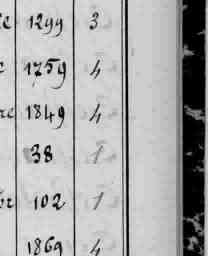 1299 3
1759 4
1849 4
38 1
102 1
1869 4